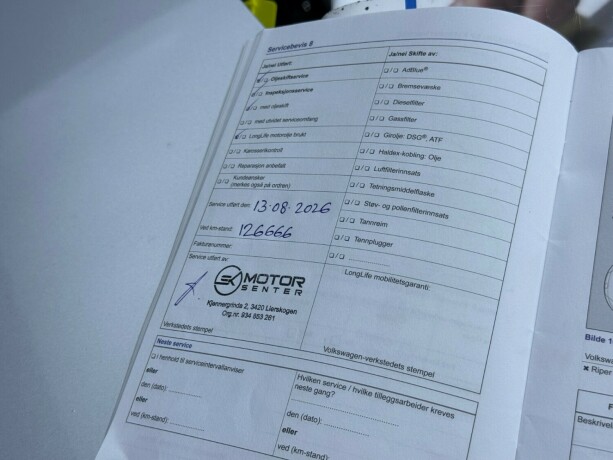 Servicebevis 8
Ja/nei Utført:
Oljeskiftservice
Inspeksjonsservice
med oljeskift
med utvidet serviceomfang
LongLife motorolje brukt
Karosserikontroll
Reparasjon anbefalt
Kundeønsker
(merkes også på ordren)
Service utført den: 13-08-2026
Ved km-stand: 126666
Fakturanummer:
Service utført av:
SK MOTOR
SENTER
Kjennergrinda 2, 3420 Lierskogen
Org.nr. 934 853 261
Verkstedets stempel
Ja/nei Skifte av:
AdBlue®
Bremsevæske
Dieselfilter
Gassfilter
Girolje: DSG®, ATF
Haldex-kobling: Olje
Luftfilterinnsats
Tetningsmiddelflaske
Støv- og pollenfilterinnsats
Tannreim
Tennplugger
LongLife mobilitetsgaranti:
Volkswagen-verkstedets stempel
Neste service
i henhold til serviceintervallanviser
eller
den (dato):
eller
ved (km-stand):
Hvilken service / hvilke tilleggsarbeider kreves
neste gang?
den (dato):
eller
ved (km-stand):
Bilde 1
Volksw
Riper
F
Beskrivel